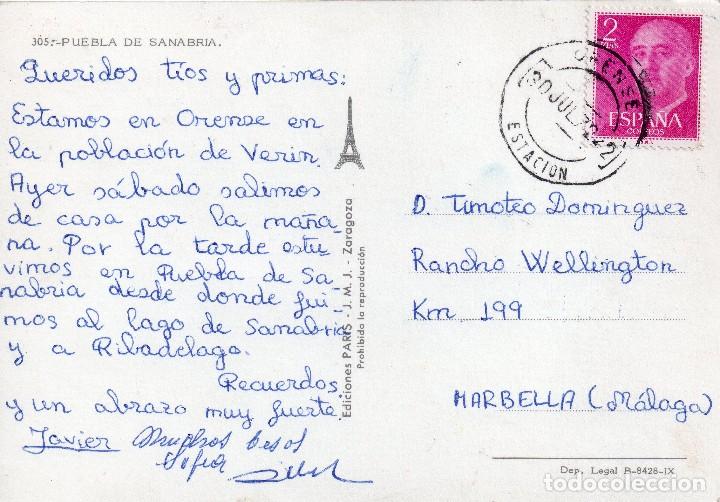 305.-PUEBLA DE SANABRIA.
Queridos tíos y primas:
Estamos en Orense en
la población de Verin.
Ayer sábado salimos
de casa por la maña
na. Por la tarde estu
vimos en Puebla de Sa
nabria desde donde fui-
mos al lago de Sanabria
y a Ribadelago.
Recuerdos
y un abrazo muy fuerte.
Javier Muchos besos
Sofia
Ediciones PARIS - J. M. J. - Zaragoza
Prohibida la reproducción
2
PTAS
ESPAÑA
CORREOS
ORENSE
30 JUL
ESTACION
D. Timoteo Dominguez
Rancho Wellington
Km 199
MARBELLA (Málaga)
Dep. Legal B-8428-IX
todocoleccion.net